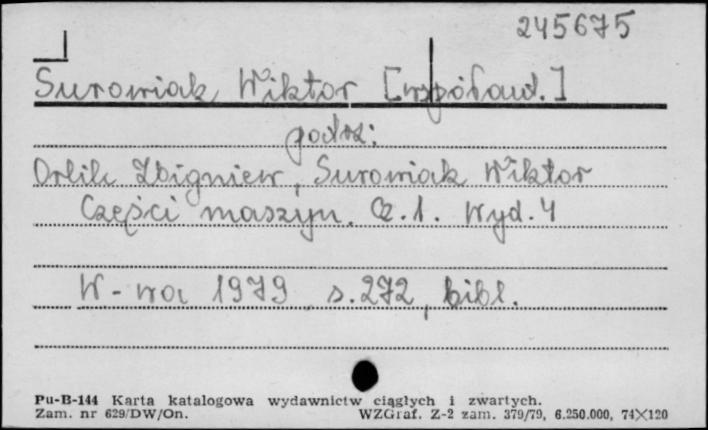 245675
Surowiak Wiktor [współaut.]
podrz:
Orlik Zbigniew, Surowiak Wiktor
Części maszyn. Cz.1. Wyd.4
W-wa 1979 s.272, bibl.
Pu-B-144 Karta katalogowa wydawnictw ciągłych i zwartych.
Zam. nr 629/DW/On. WZGraf. Z-2 zam. 379/79, 6.250.000, 74×120